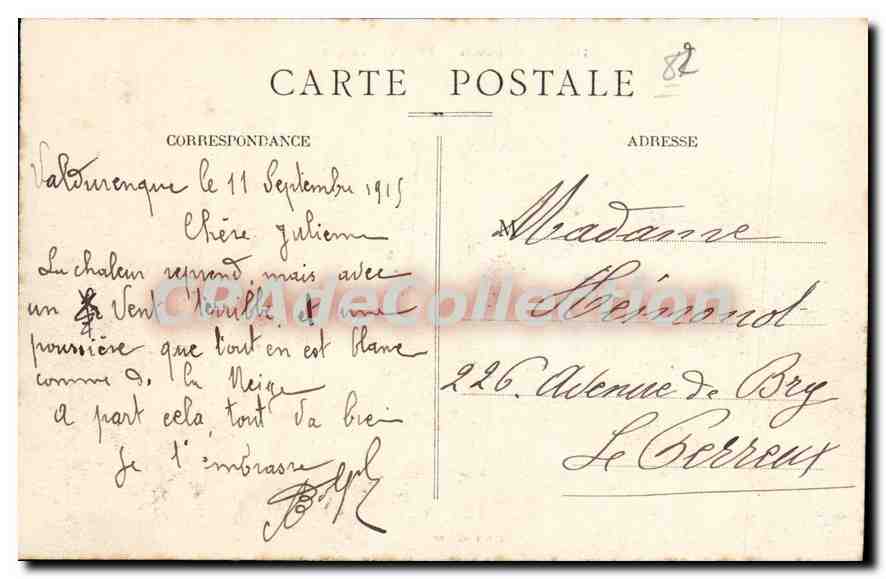 82
CARTE POSTALE
CORRESPONDANCE
Valdurenque le 11 Septembre 1915
Chère Julienne
La chaleur reprend mais avec
un Vent terrible et une
poussière que tout en est blanc
comme de la Neige
A part cela tout va bien
Je t'embrasse
ADRESSE
M Madame
226. Avenue de Bry
Le Perreux
CPAdeCollection.com